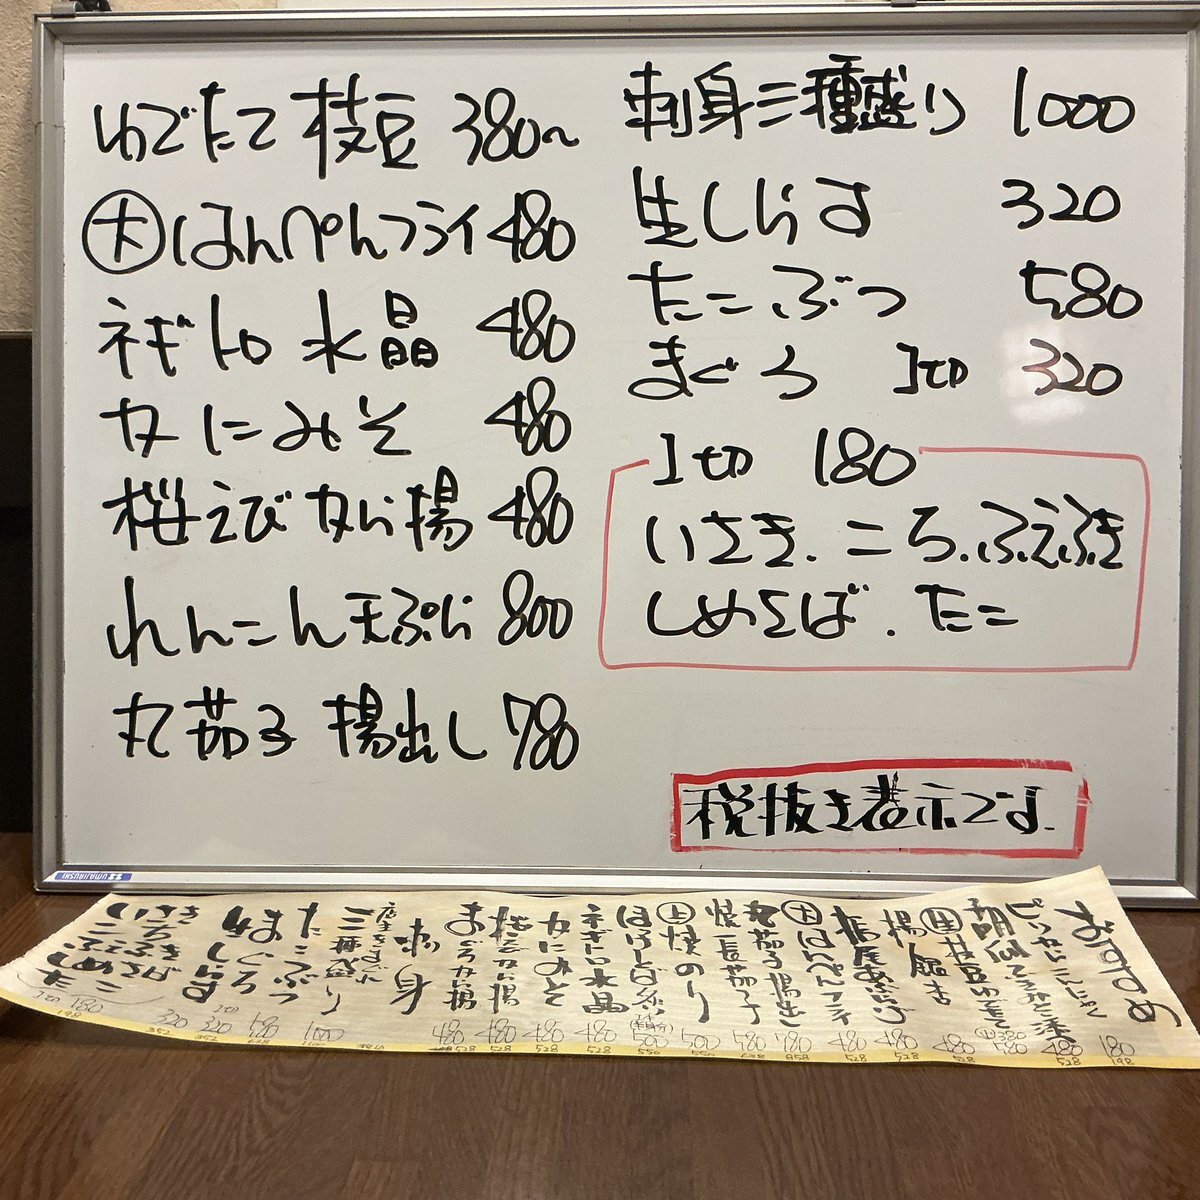 ゆでたて枝豆 380〜
大 はんぺんフライ 480
ネギトロ水晶 480
カニみそ 480
桜えびから揚 480
れんこん天ぷら 800
丸茄子揚出し 780
刺身三種盛り 1000
生しらす 320
たこぶつ 580
まぐろ 1切 320
1切 180
いさき.こち.ふえふき
しめさば.たこ
税抜き表示です.
UMAJIRUSHI
おすすめ
ピリカラこんにゃく 180 198
480 528
枝豆ゆでたて 380
揚銀杏 480
栃尾あぶらげ 480 528
大 はんぺんフライ 480 528
丸茄子揚出し 780 858
焼長茄子 580
上 焼のり 500 550
500 550
ネギトロ水晶 480 528
カニみそ 480 528
桜えびから揚 480 528
まぐろから揚 480 528
刺身
三種盛り 1000 1100
たこぶつ 580
まぐろ 1切 320 352
生しらす 320 352
いさき
こち
ふえふき
しめさば
たこ
1切 180 198